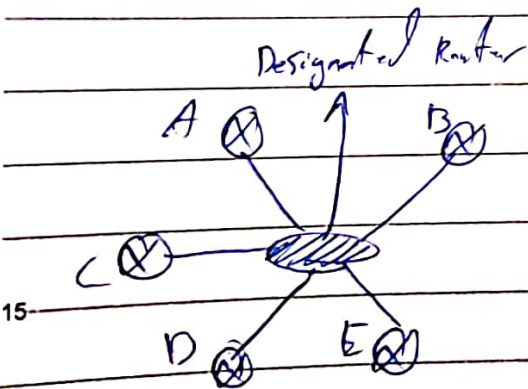 Designated Router
A
B
C
15
D
E